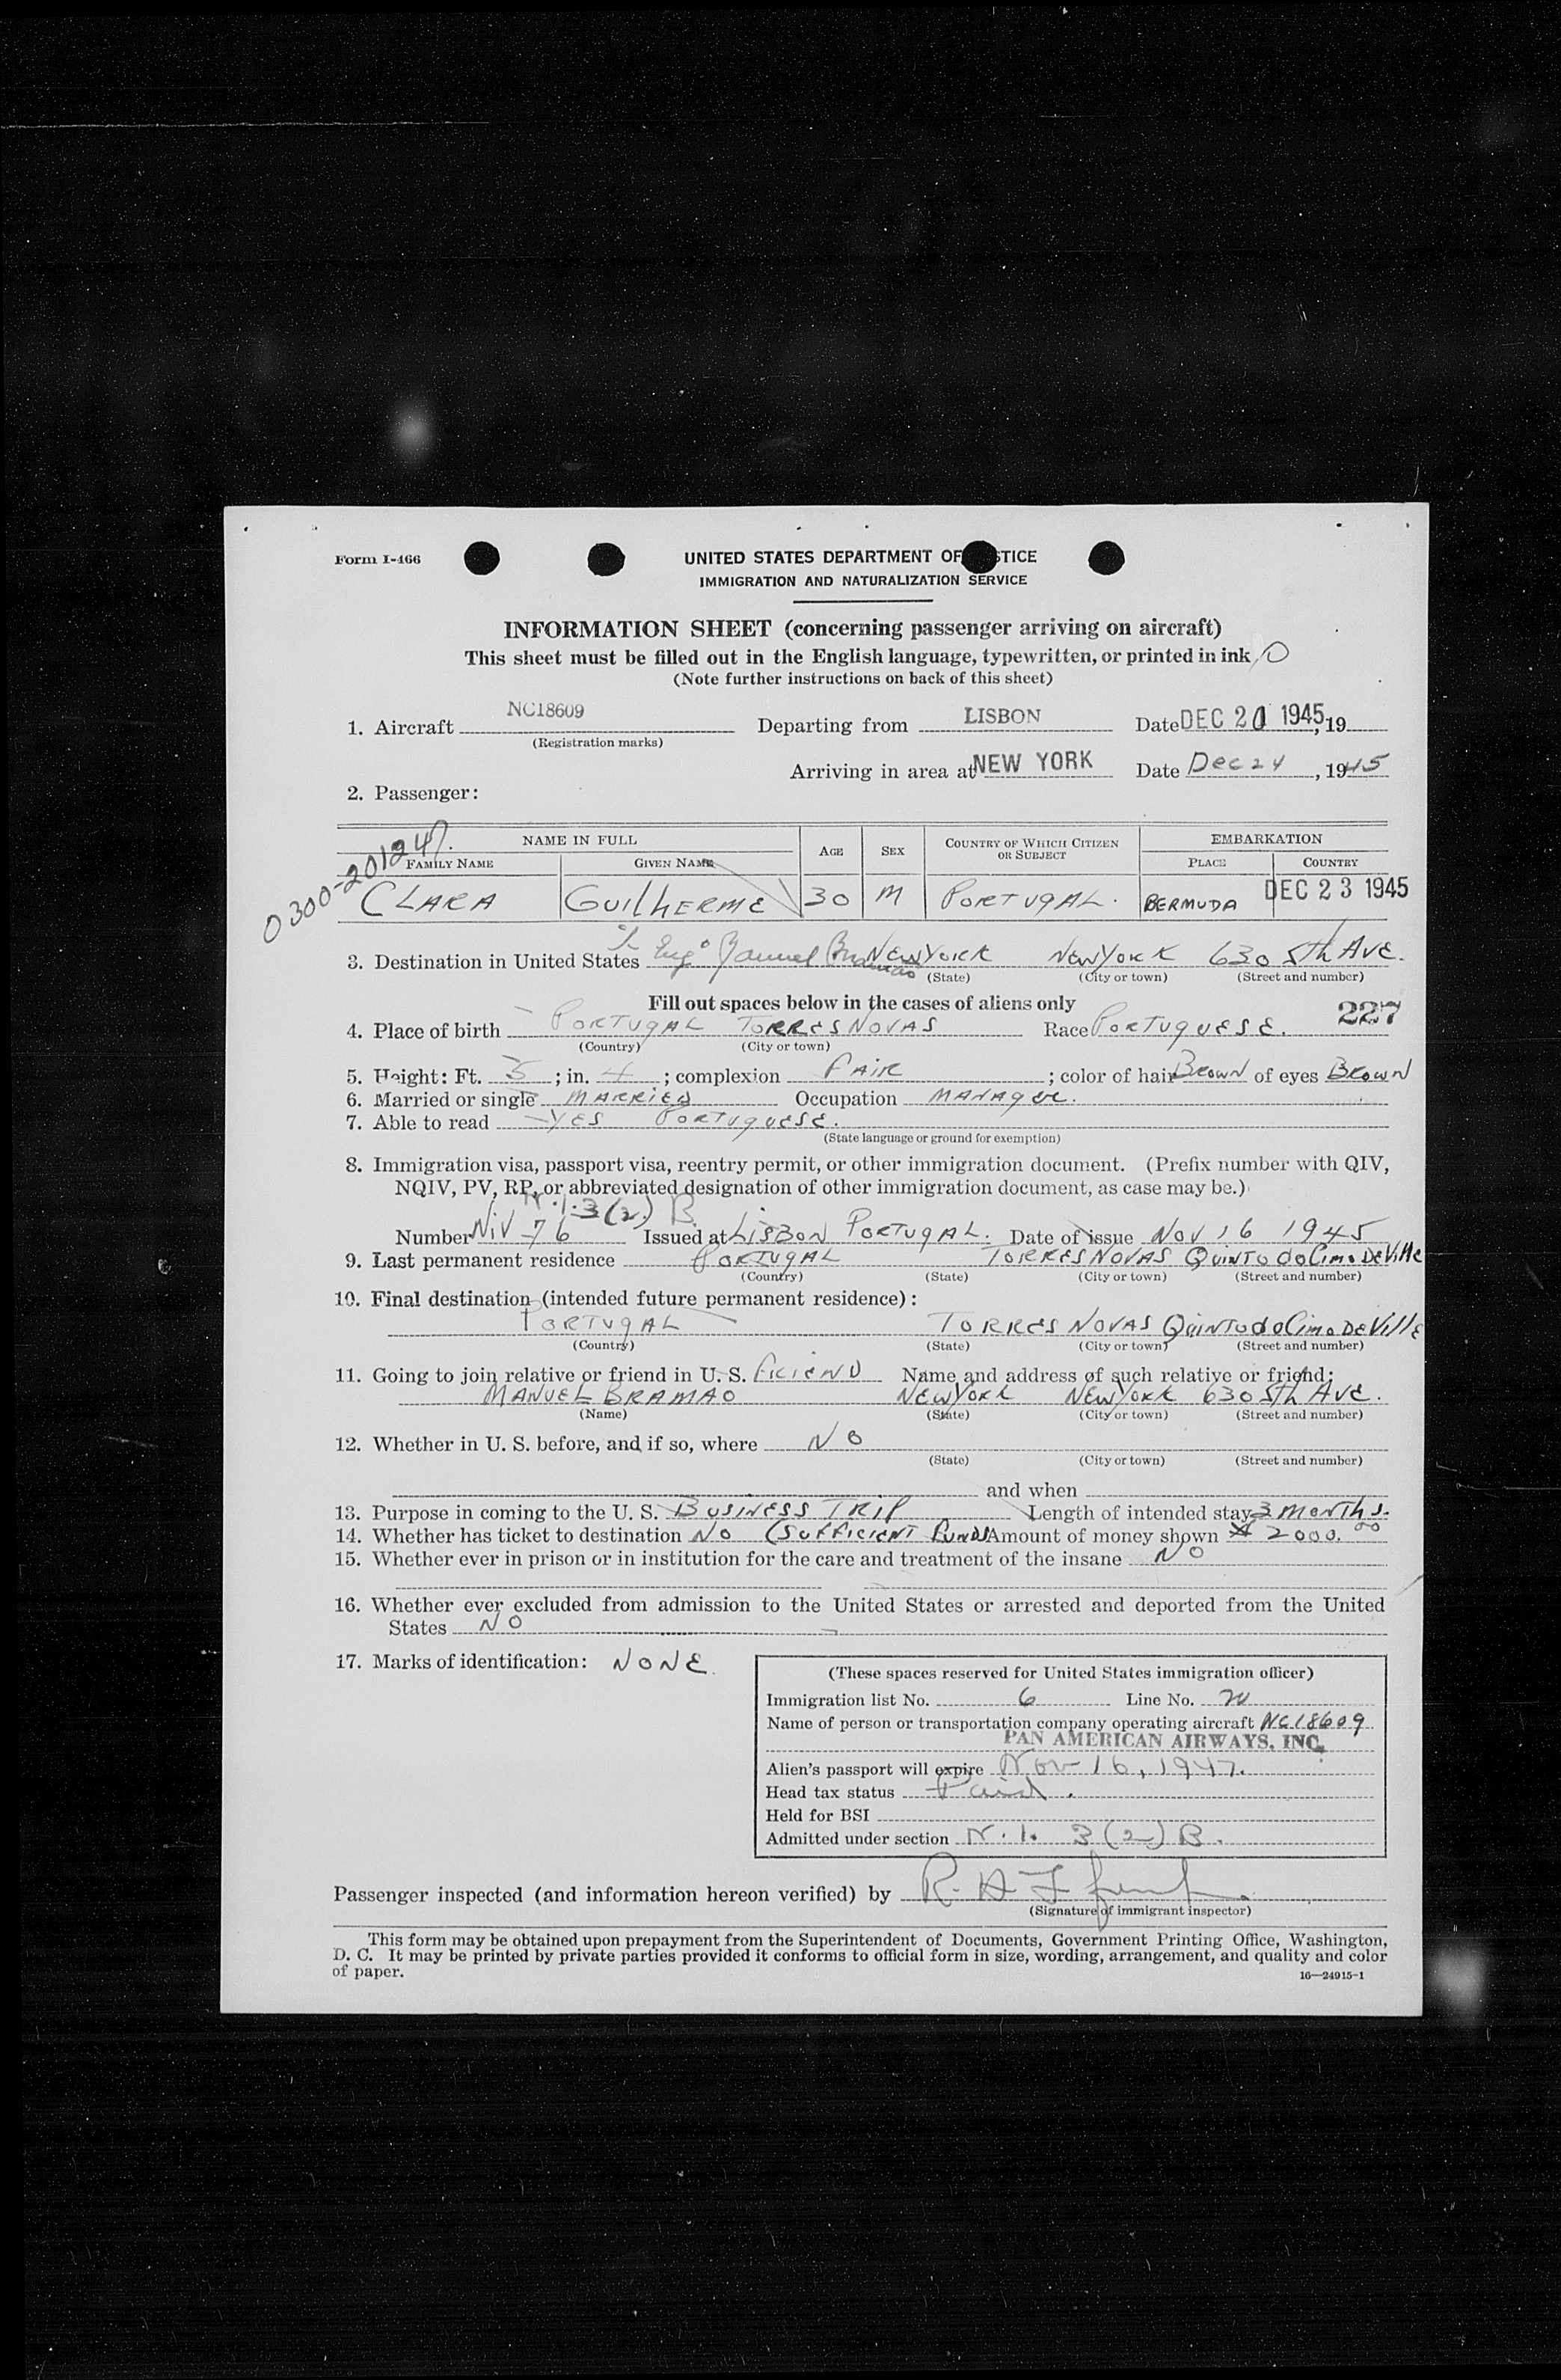 Form I-466
UNITED STATES DEPARTMENT OF STICE
IMMIGRATION AND NATURALIZATION SERVICE
INFORMATION SHEET (concerning passenger arriving on aircraft)
This sheet must be filled out in the English language, typewritten, or printed in ink
(Note further instructions on back of this sheet)
1. Aircraft NC18609 Departing from LISBON Date DEC 21 1945, 19
(Registration marks)
Arriving in area at NEW YORK Date Dec 24, 1945
2. Passenger:
0300-201247.
NAME IN FULL AGE SEX COUNTRY OF WHICH CITIZEN OR SUBJECT EMBARKATION
FAMILY NAME GIVEN NAME PLACE COUNTRY
CLARA GUILHERME 30 M PORTUGAL. BERMUDA DEC 23 1945
3. Destination in United States Engº Manuel Bramao NEW YORK NEW YORK 630 5th AVE.
(State) (City or town) (Street and number)
Fill out spaces below in the cases of aliens only
227
4. Place of birth PORTUGAL TORRES NOVAS Race PORTUGUESE.
(Country) (City or town)
5. Height: Ft. 5; in. 4; complexion FAIR; color of hair BROWN of eyes BROWN
6. Married or single MARRIED Occupation MANAGER.
7. Able to read YES PORTUGUESE.
(State language or ground for exemption)
8. Immigration visa, passport visa, reentry permit, or other immigration document. (Prefix number with QIV,
NQIV, PV, RP, or abbreviated designation of other immigration document, as case may be.)
N.I. 3(2) B
Number NIV 76 Issued at LISBON PORTUGAL. Date of issue NOV 16 1945
9. Last permanent residence PORTUGAL TORRES NOVAS QUINTO do Cimo DE Ville
(Country) (State) (City or town) (Street and number)
10. Final destination (intended future permanent residence):
PORTUGAL TORRES NOVAS QUINTO do Cimo DE Ville
(Country) (State) (City or town) (Street and number)
11. Going to join relative or friend in U. S. FRIEND Name and address of such relative or friend:
MANUEL BRAMAO NEW YORK NEW YORK 630 5th AVE.
(Name) (State) (City or town) (Street and number)
12. Whether in U. S. before, and if so, where NO
(State) (City or town) (Street and number)
and when
13. Purpose in coming to the U. S. BUSINESS TRIP Length of intended stay 3 MONTHS.
14. Whether has ticket to destination NO (SUFFICIENT FUNDS Amount of money shown $ 2000.00
15. Whether ever in prison or in institution for the care and treatment of the insane NO
16. Whether ever excluded from admission to the United States or arrested and deported from the United
States NO
17. Marks of identification: NONE.
(These spaces reserved for United States immigration officer)
Immigration list No. 6 Line No.
Name of person or transportation company operating aircraft NC18609
PAN AMERICAN AIRWAYS, INC.
Alien's passport will expire Nov 16, 1947.
Head tax status Paid.
Held for BSI
Admitted under section N.I. 3(2) B.
Passenger inspected (and information hereon verified) by
(Signature of immigrant inspector)
This form may be obtained upon prepayment from the Superintendent of Documents, Government Printing Office, Washington,
D. C. It may be printed by private parties provided it conforms to official form in size, wording, arrangement, and quality and color
of paper.
16—24915-1